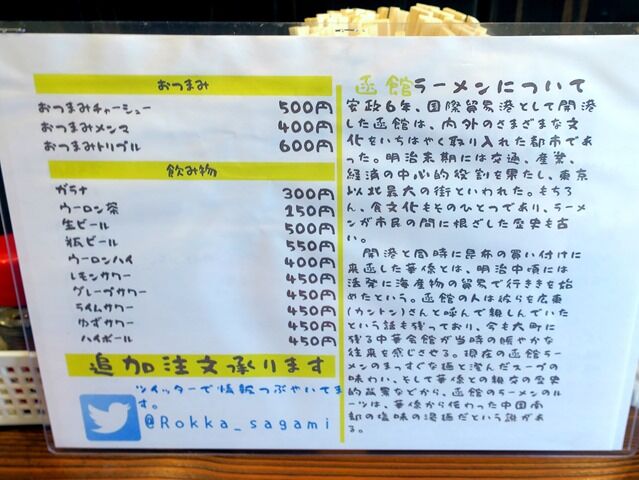 おつまみ
おつまみチャーシュー 500円
おつまみメンマ 400円
おつまみトリプル 600円
飲み物
ガラナ 300円
ウーロン茶 150円
生ビール 500円
瓶ビール 550円
ウーロンハイ 400円
レモンサワー 450円
グレープサワー 450円
ライムサワー 450円
ゆずサワー 450円
ハイボール 450円
追加注文承ります
ツイッターで情報つぶやいてま
す。
@Rokka_sagami
函館ラーメンについて
安政6年、国際貿易港として開港
した函館は、内外のさまざまな文
化をいちはやく取り入れた都市であ
った。明治末期には交通、産業、
経済の中心的役割を果たし、東京
以北最大の街といわれた。もちろ
ん、食文化もそのひとつであり、ラーメ
ンが市民の間に根ざした歴史も古
い。
開港と同時に昆布の買い付けに
来函した華僑とは、明治中頃には
活発に海産物の貿易で行ききを始
めたという。函館の人は彼らを広東
(カントン)さんと呼んで親しんでいた
という話も残っており、今も大町に
残る中華会館が当時の賑やかな
往来を感じさせる。現在の函館ラー
メンのまっすぐな麺と澄んだスープの
味わい、そして華僑との親交の歴史
的背景などから、函館のラーメンのル
ーツは、華僑から伝わった中国南
部の塩味の湯麺だという説があ
る。